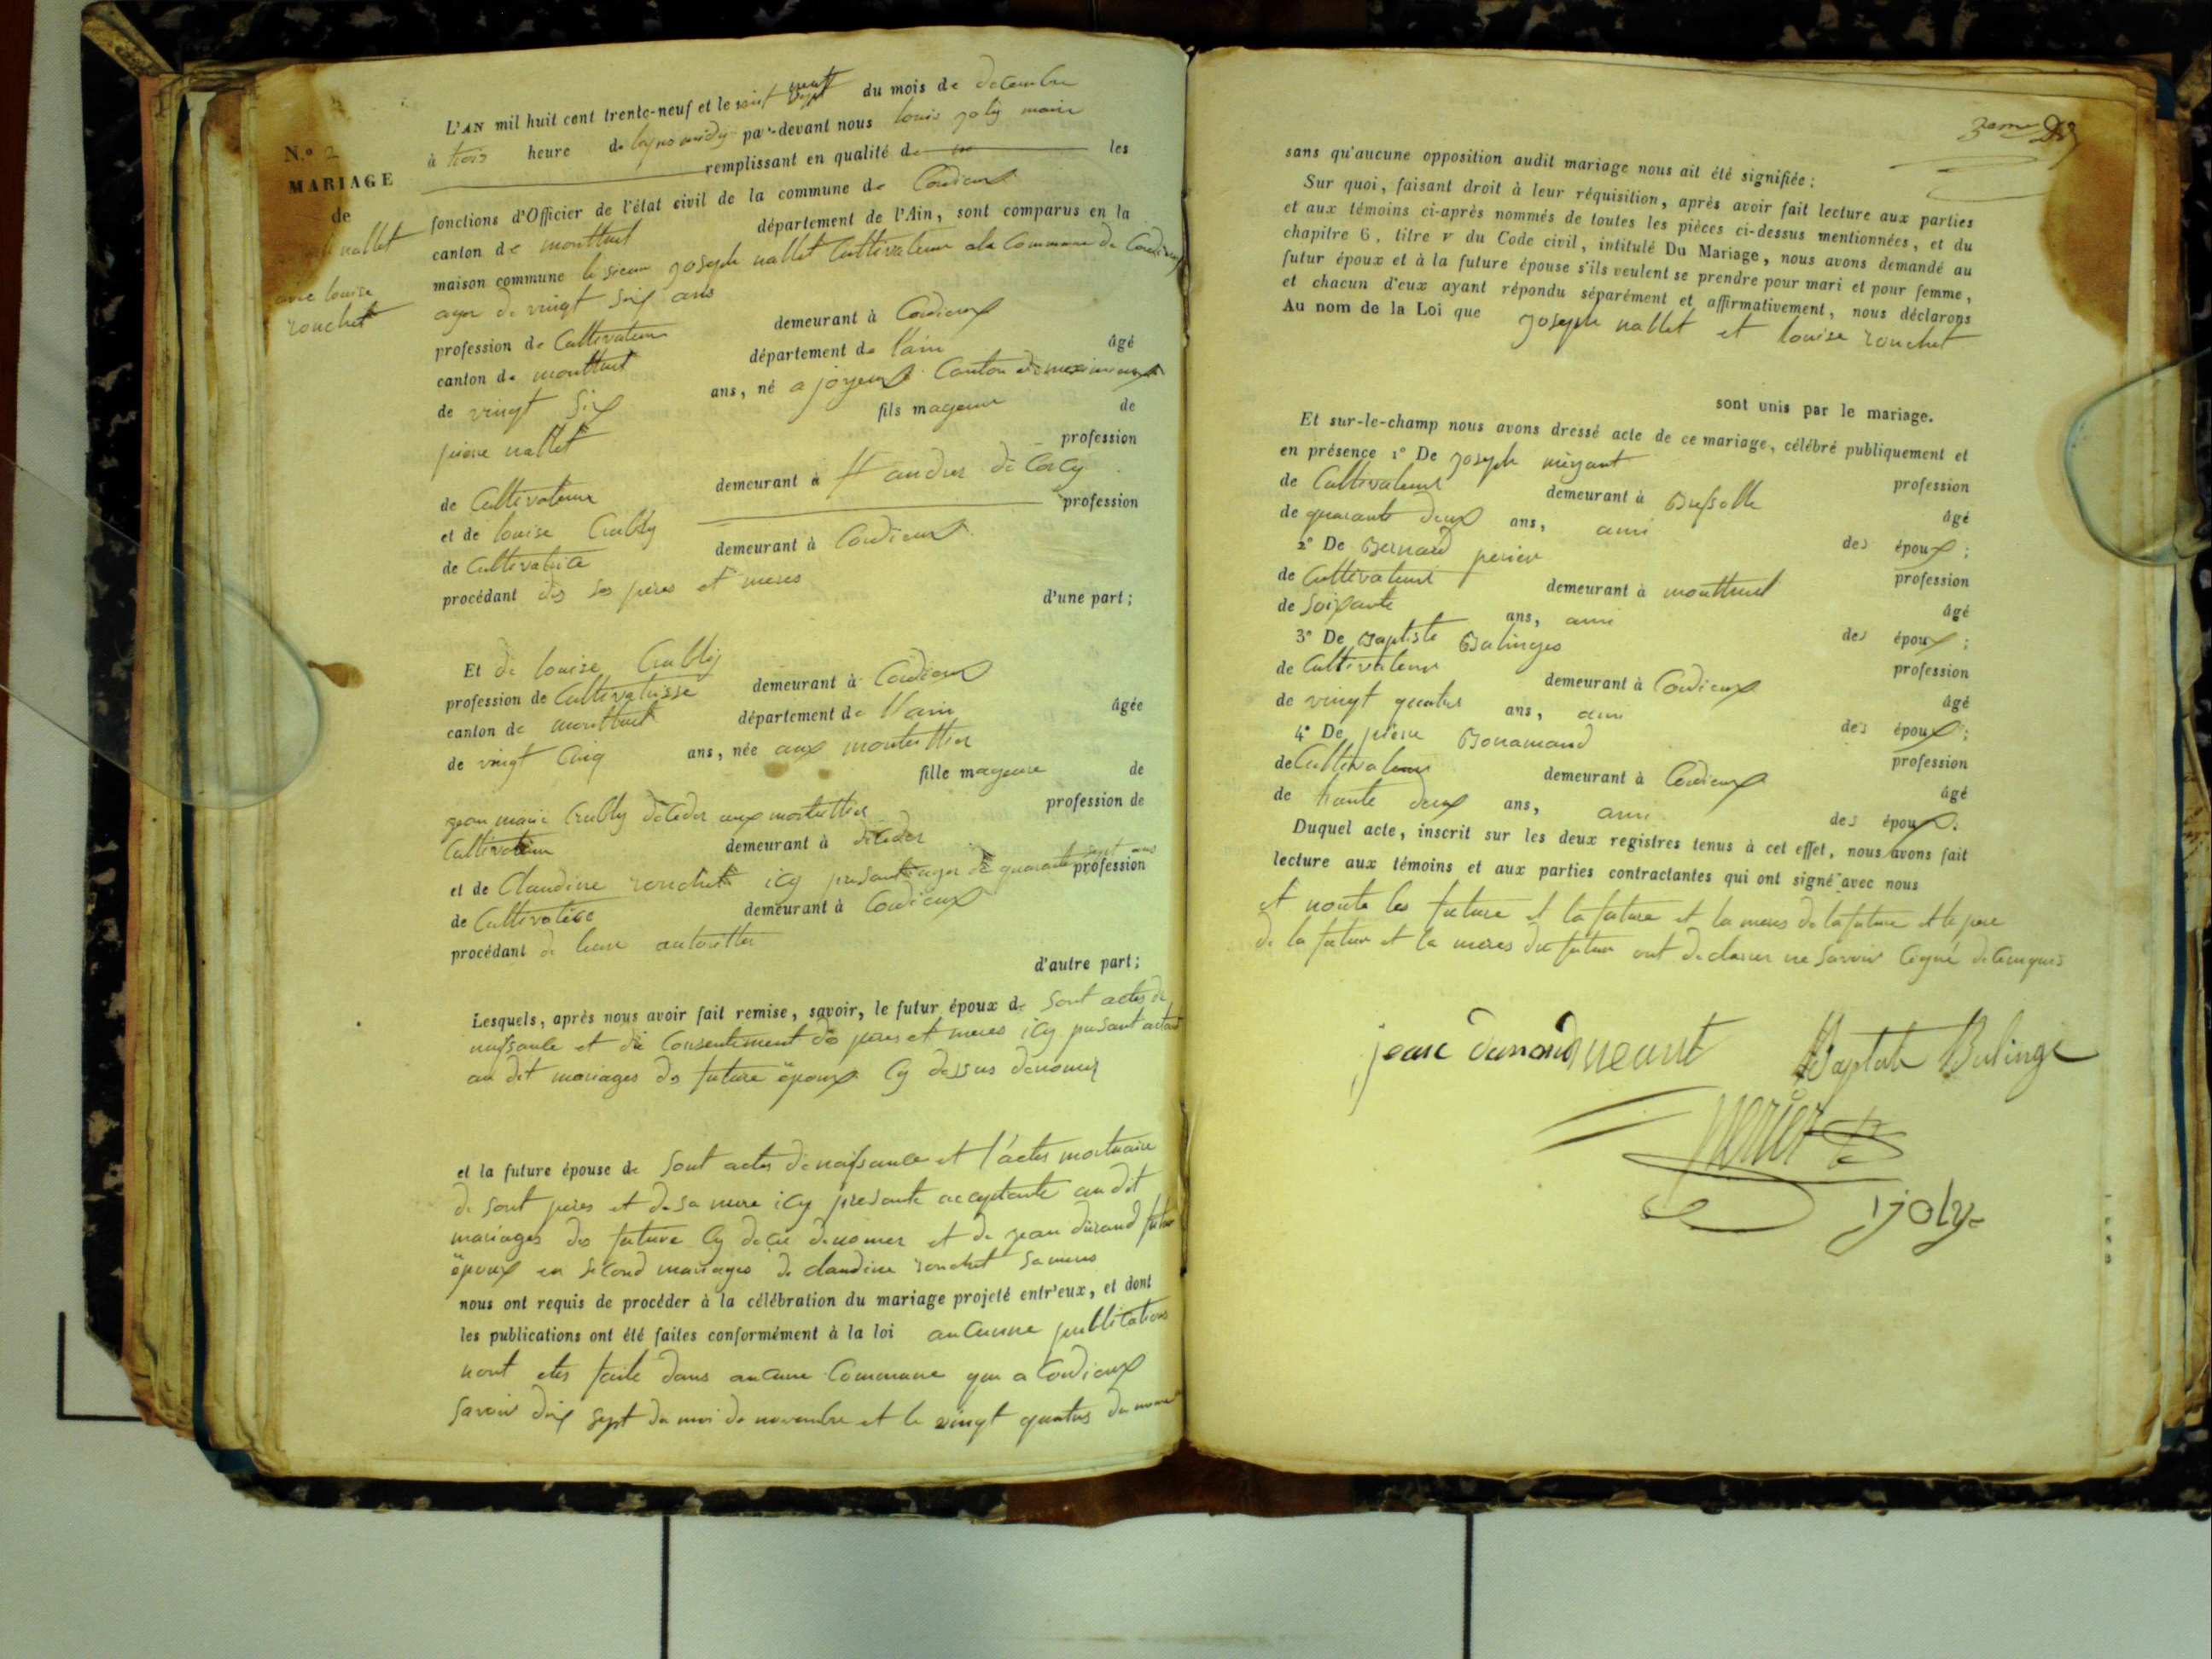 L'AN mil huit cent trente-neuf et le vint neuf du mois de decembre
à trois heure de lapremidy par-devant nous louis joly maire
remplissant en qualité de les
fonctions d'Officier de l'état civil de la commune de Cordieux
canton de monttuel département de l'Ain, sont comparus en la
maison commune le sieur joseph nallet Cultivateur a la Commune de Cordieux
ager de vingt six ans
profession de Cultivateur demeurant à Cordieux
canton de monttuel département de l'ain âgé
de vingt six ans, né a joyeux Canton de meximieux
fils mageur de
pierre nallet profession
de Cultivateur demeurant à st andres de Corcy
et de louise Crably profession
de Cultivatrice demeurant à Cordieux
procédant des ses peres et meres
d'une part;
N.º 2
MARIAGE
de
nallet
avec louise
ronchet
Et de louise Crably
profession de Cultivatrisse demeurant à Cordieux
canton de monttuel département de l'ain âgée
de vingt Cinq ans, née aux montettier
fille mageure de
jean marie Crably deceder aux montettier profession de
Cultivateur demeurant à deceder
et de Claudine ronchet icy presante ager de quarante sept ans profession
de Cultivatice demeurant à Cordieux
procédant de leur autorittes
d'autre part;
Lesquels, après nous avoir fait remise, savoir, le futur époux de sont actes de
naissance et du Consentement des peres et meres icy presant
au dit mariages des future époux Cy dessus denomes
et la future épouse de sont actes de naissance et l'actes mortuaire
de sont peres et de sa mere icy presante acceptante au dit
mariages des future Cy denomer et de jean durand
époux en second mariages de claudine ronchet sa meres
nous ont requis de procéder à la célébration du mariage projeté entr'eux, et dont
les publications ont été faites conformément à la loi auCunne publications
nont etes faite dans auCune Commune que a Cordieux
savoir dix sept du moi de novembre et le vingt quatres du
3eme
sans qu'aucune opposition audit mariage nous ait été signifiée:
Sur quoi, faisant droit à leur réquisition, après avoir fait lecture aux parties
et aux témoins ci-après nommés de toutes les pièces ci-dessus mentionnées, et du
chapitre 6, titre v du Code civil, intitulé Du Mariage, nous avons demandé au
futur époux et à la future épouse s'ils veulent se prendre pour mari et pour femme,
et chacun d'eux ayant répondu séparément et affirmativement, nous déclarons
Au nom de la Loi que joseph nallet et louise ronchet
sont unis par le mariage.
Et sur-le-champ nous avons dressé acte de ce mariage, célébré publiquement et
en présence 1º De joseph profession
de Cultivateur demeurant à Bussolle âgé
de quarante deux ans, ami des époux;
2º De Bernard perier profession
de Cultivateur demeurant à monttuel âgé
de soixante ans, ami des époux;
3º De Baptiste Balinges profession
de Cultivateur demeurant à Cordieux âgé
de vingt quatres ans, ami des époux;
4º De pierre Bonamand profession
de Cultivateur demeurant à Cordieux âgé
de trante deux ans, ami des époux.
Duquel acte, inscrit sur les deux registres tenus à cet effet, nous avons fait
lecture aux témoins et aux parties contractantes qui ont signé avec nous
et les future et la future et la meres de la future et le pere
de la futur et la meres du futur ont declarer ne savoir signé de
jean Baptiste Balinge
perier
joly